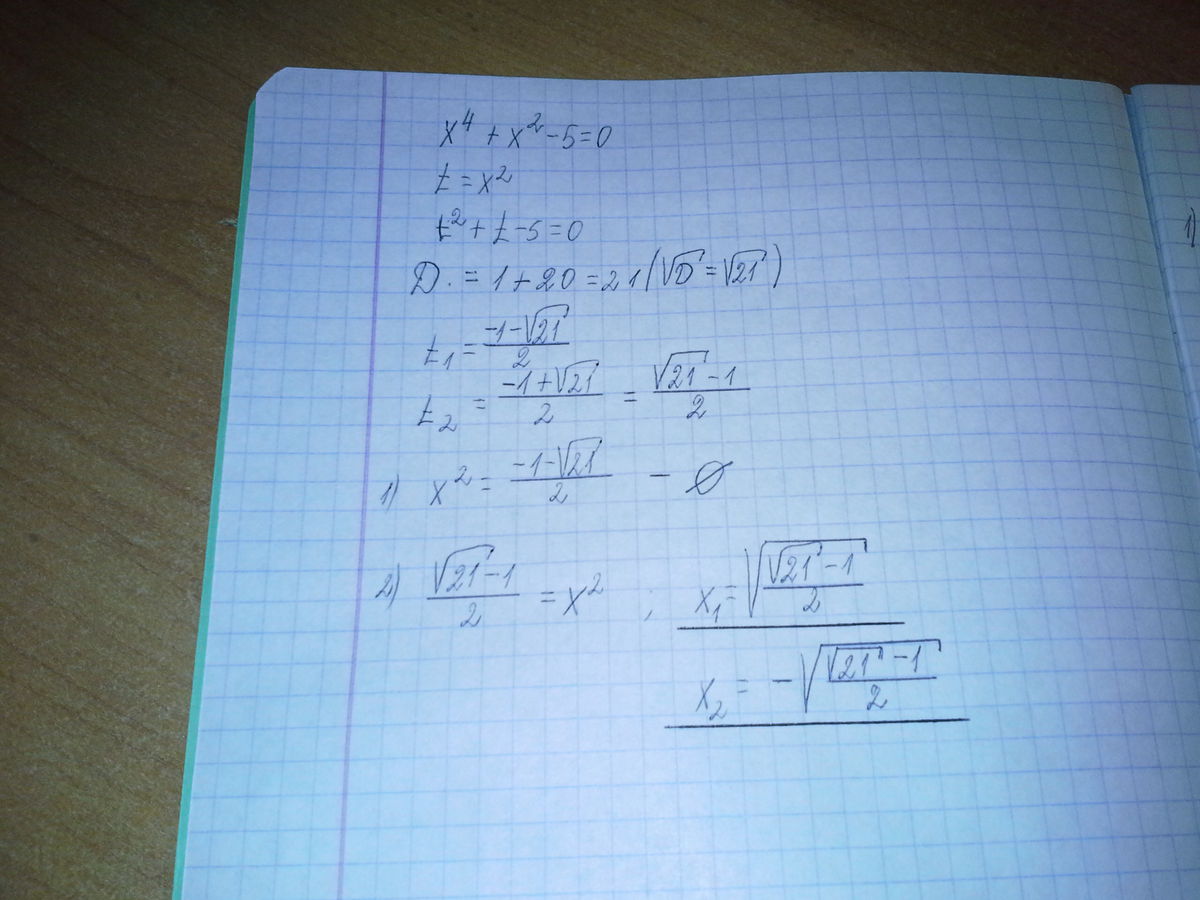 x⁴ + x² - 5 = 0
t = x²
t² + t - 5 = 0
D. = 1 + 20 = 21 (√D = √21)
t₁ = (-1-√21)/2
t₂ = (-1+√21)/2 = (√21 - 1)/2
1) x² = (-1-√21)/2 - ∅
2) (√21 - 1)/2 = x² ; x₁ = √((√21 - 1)/2)
x₂ = -√((√21 - 1)/2)
1)